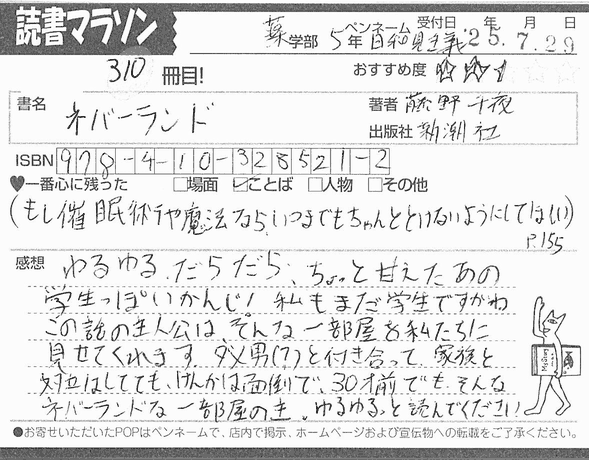 読書マラソン
薬学部 5年 ペンネーム 日和見主義 受付日 '25年 7.月 29日
310冊目! おすすめ度 ☆☆
書名 ネバーランド 著者 藤野千夜
出版社 新潮社
ISBN 978-4-10-328521-2
♥一番心に残った □場面 ☑ことば □人物 □その他
(もし催眠術や魔法なら、いつまでもちゃんととけないようにしてほしい)
P.155
感想 ゆるゆる、だらだら、ちょっと甘えたあの
学生っぽいかんじ! 私もまだ学生ですがね
この話の主人公は、そんな一部屋を私たちに
見せてくれます。ダメ男(?)と付き合って、家族と
対立はしてても、けんかは面倒で、30才前でも、そんな
ネバーランドな一部屋の主。ゆるゆるっと読んでください
●お寄せいただいたPOPはペンネームで、店内で掲示、ホームページおよび宣伝物への転載をご了承ください。